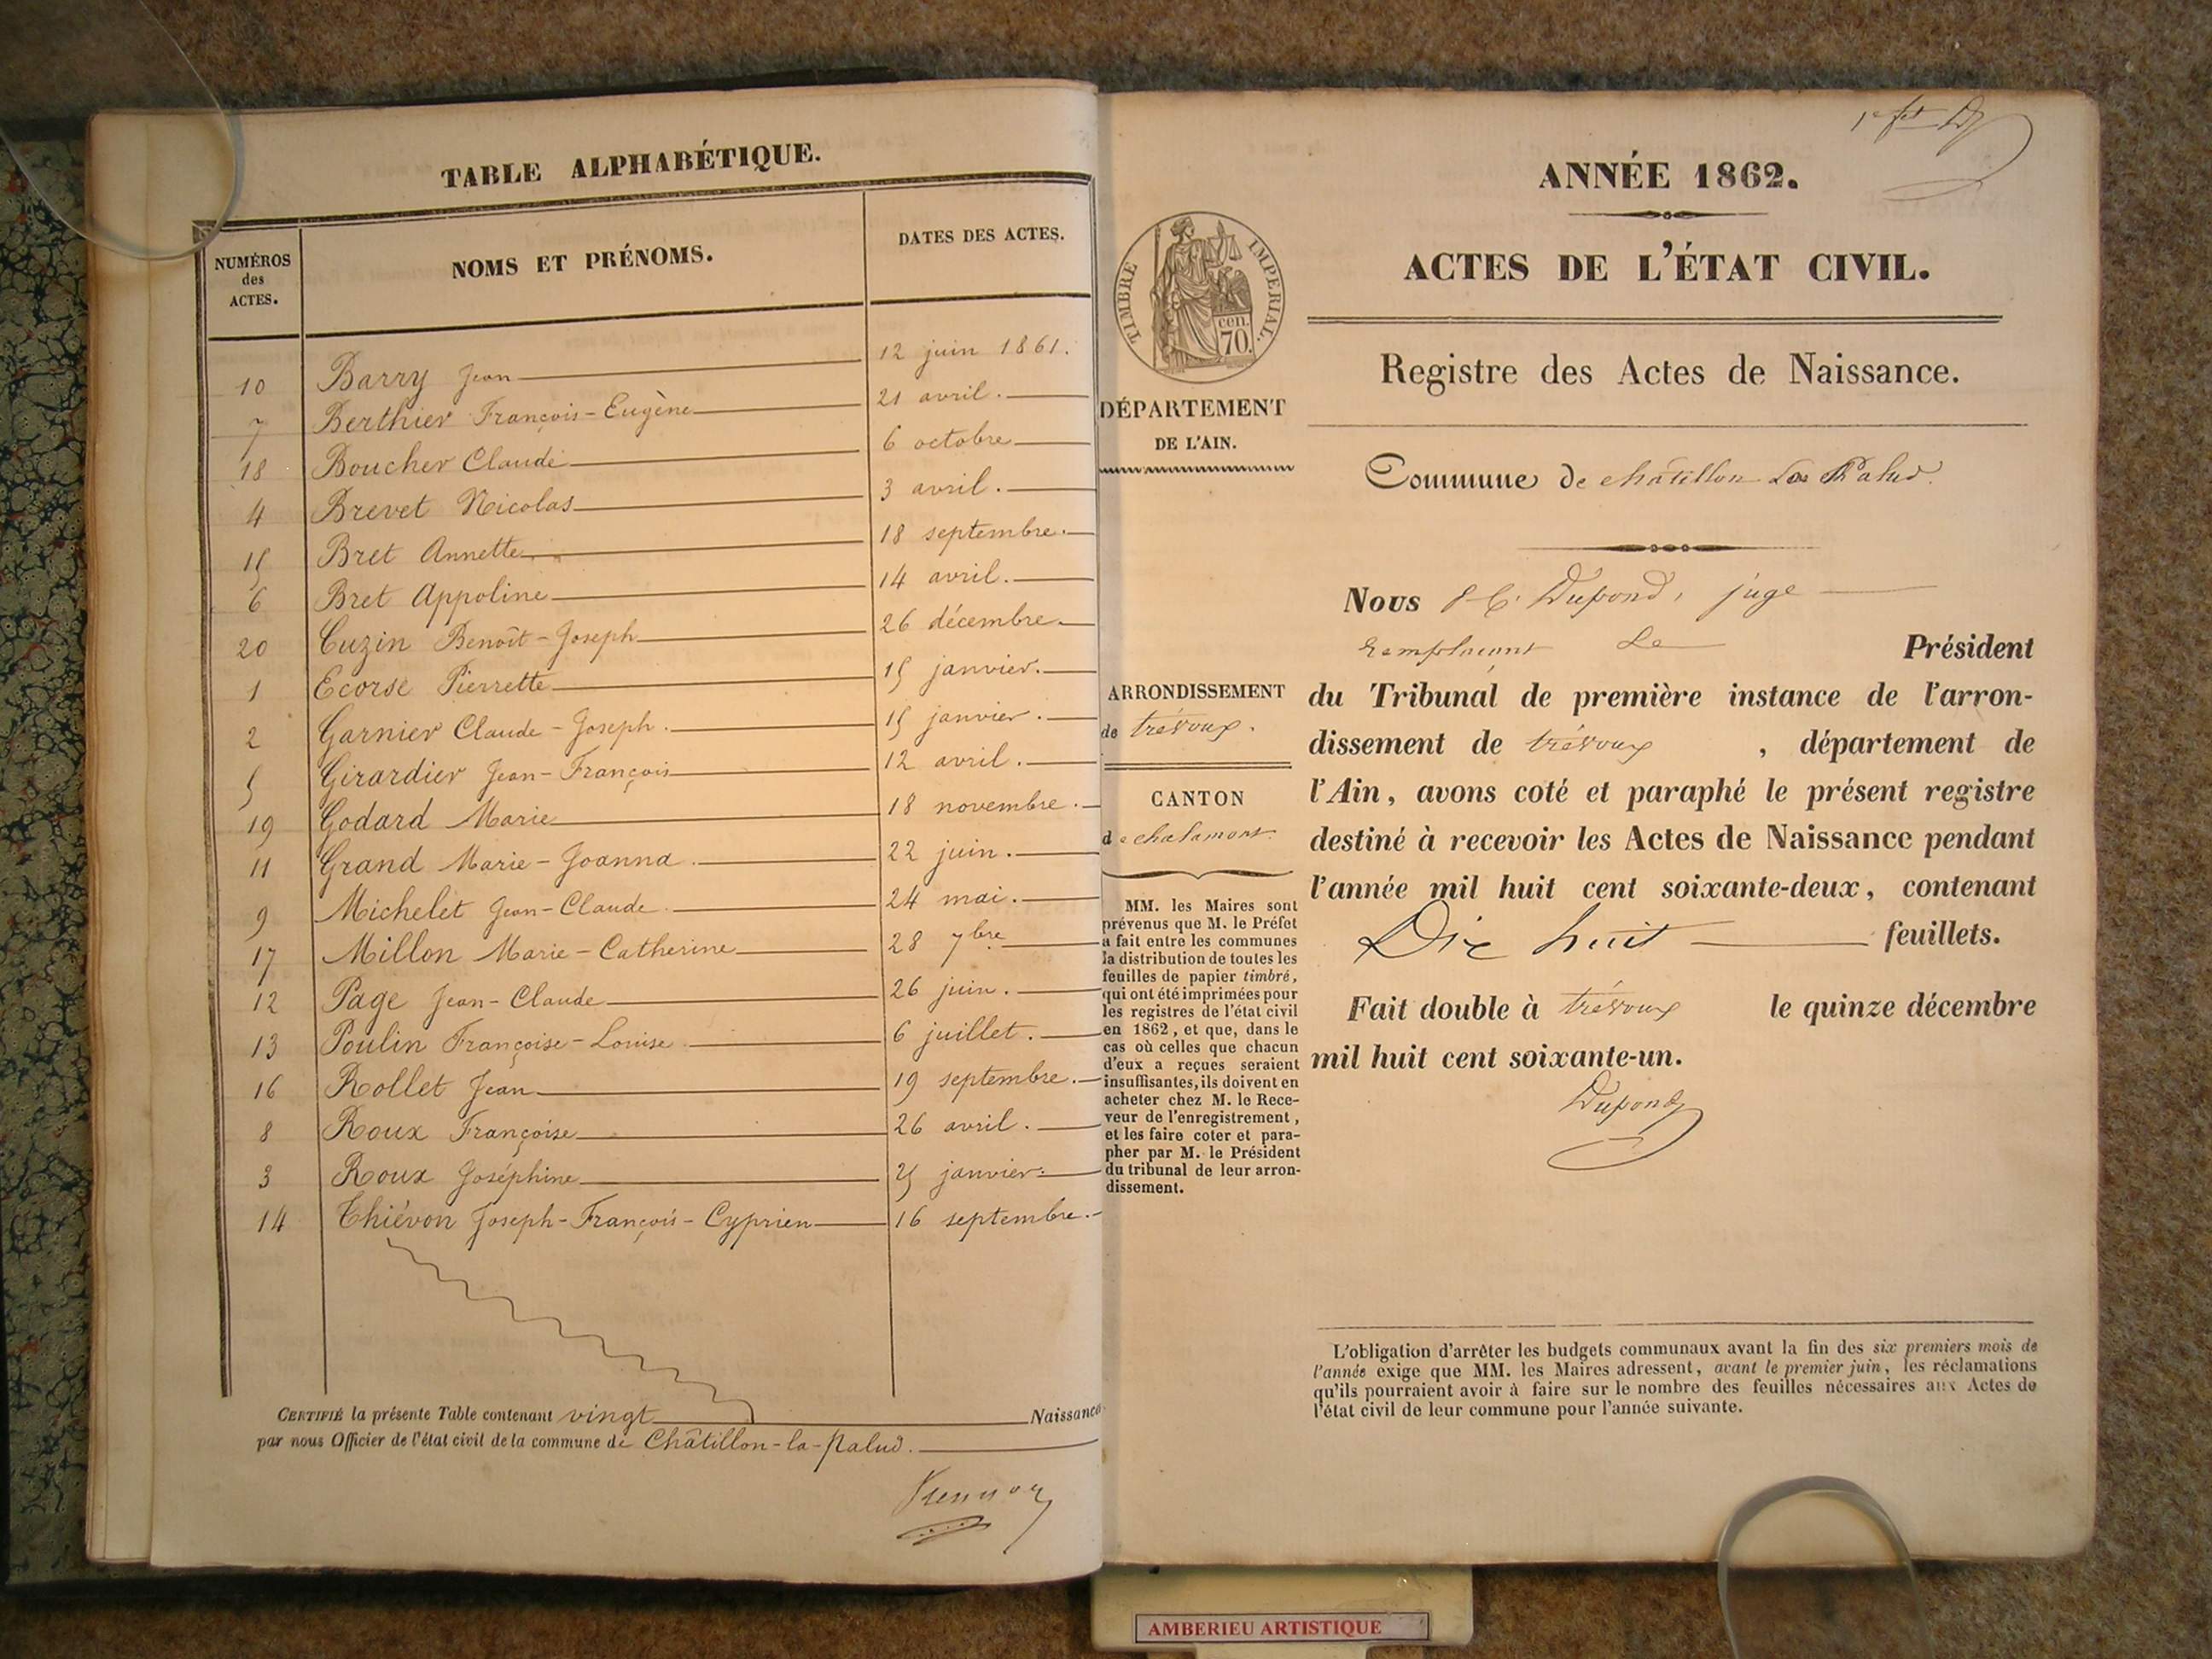 TABLE ALPHABÉTIQUE.
NUMÉROS des ACTES. NOMS ET PRÉNOMS. DATES DES ACTES.
10 Barry Jean 12 juin 1861.
7 Berthier François-Eugène 21 avril.
18 Boucher Claude 6 octobre
4 Brevet Nicolas 3 avril.
15 Bret Annette 18 septembre.
6 Bret Appoline 14 avril.
20 Cuzin Benoît-Joseph 26 décembre
1 Ecorse Pierrette 15 janvier.
2 Garnier Claude-Joseph. 15 janvier.
5 Girardier Jean-François 12 avril.
19 Godard Marie 18 novembre.
11 Grand Marie-Joanna. 22 juin.
9 Michelet Jean-Claude. 24 mai.
17 Millon Marie-Catherine 28 7bre
12 Page Jean-Claude 26 juin.
13 Poulin Françoise-Louise 6 juillet.
16 Rollet Jean 19 septembre.
8 Roux Françoise 26 avril.
3 Roux Joséphine 25 janvier.
14 Thiévon Joseph-François-Cyprien 16 septembre.
CERTIFIÉ la présente Table contenant vingt Naissance
par nous Officier de l'état civil de la commune de Châtillon-la-Palud.
TIMBRE IMPERIAL.
cen.
70.
DÉPARTEMENT
DE L'AIN.
ARRONDISSEMENT
de trévoux.
CANTON
de chalamont.
MM. les Maires sont
prévenus que M. le Préfet
a fait entre les communes
la distribution de toutes les
feuilles de papier timbré,
qui ont été imprimées pour
les registres de l'état civil
en 1862, et que, dans le
cas où celles que chacun
d'eux a reçues seraient
insuffisantes, ils doivent en
acheter chez M. le Rece-
veur de l'enregistrement,
et les faire coter et para-
pher par M. le Président
du tribunal de leur arron-
dissement.
ANNÉE 1862.
ACTES DE L'ÉTAT CIVIL.
Registre des Actes de Naissance.
Commune de chatillon La Palud.
Nous Dupond, juge
remplaçant Le Président
du Tribunal de première instance de l'arron-
dissement de trévoux, département de
l'Ain, avons coté et paraphé le présent registre
destiné à recevoir les Actes de Naissance pendant
l'année mil huit cent soixante-deux, contenant
Dix huit feuillets.
Fait double à trévoux le quinze décembre
mil huit cent soixante-un.
Dupond
L'obligation d'arrêter les budgets communaux avant la fin des six premiers mois de
l'année exige que MM. les Maires adressent, avant le premier juin, les réclamations
qu'ils pourraient avoir à faire sur le nombre des feuilles nécessaires aux Actes de
l'état civil de leur commune pour l'année suivante.
AMBERIEU ARTISTIQUE